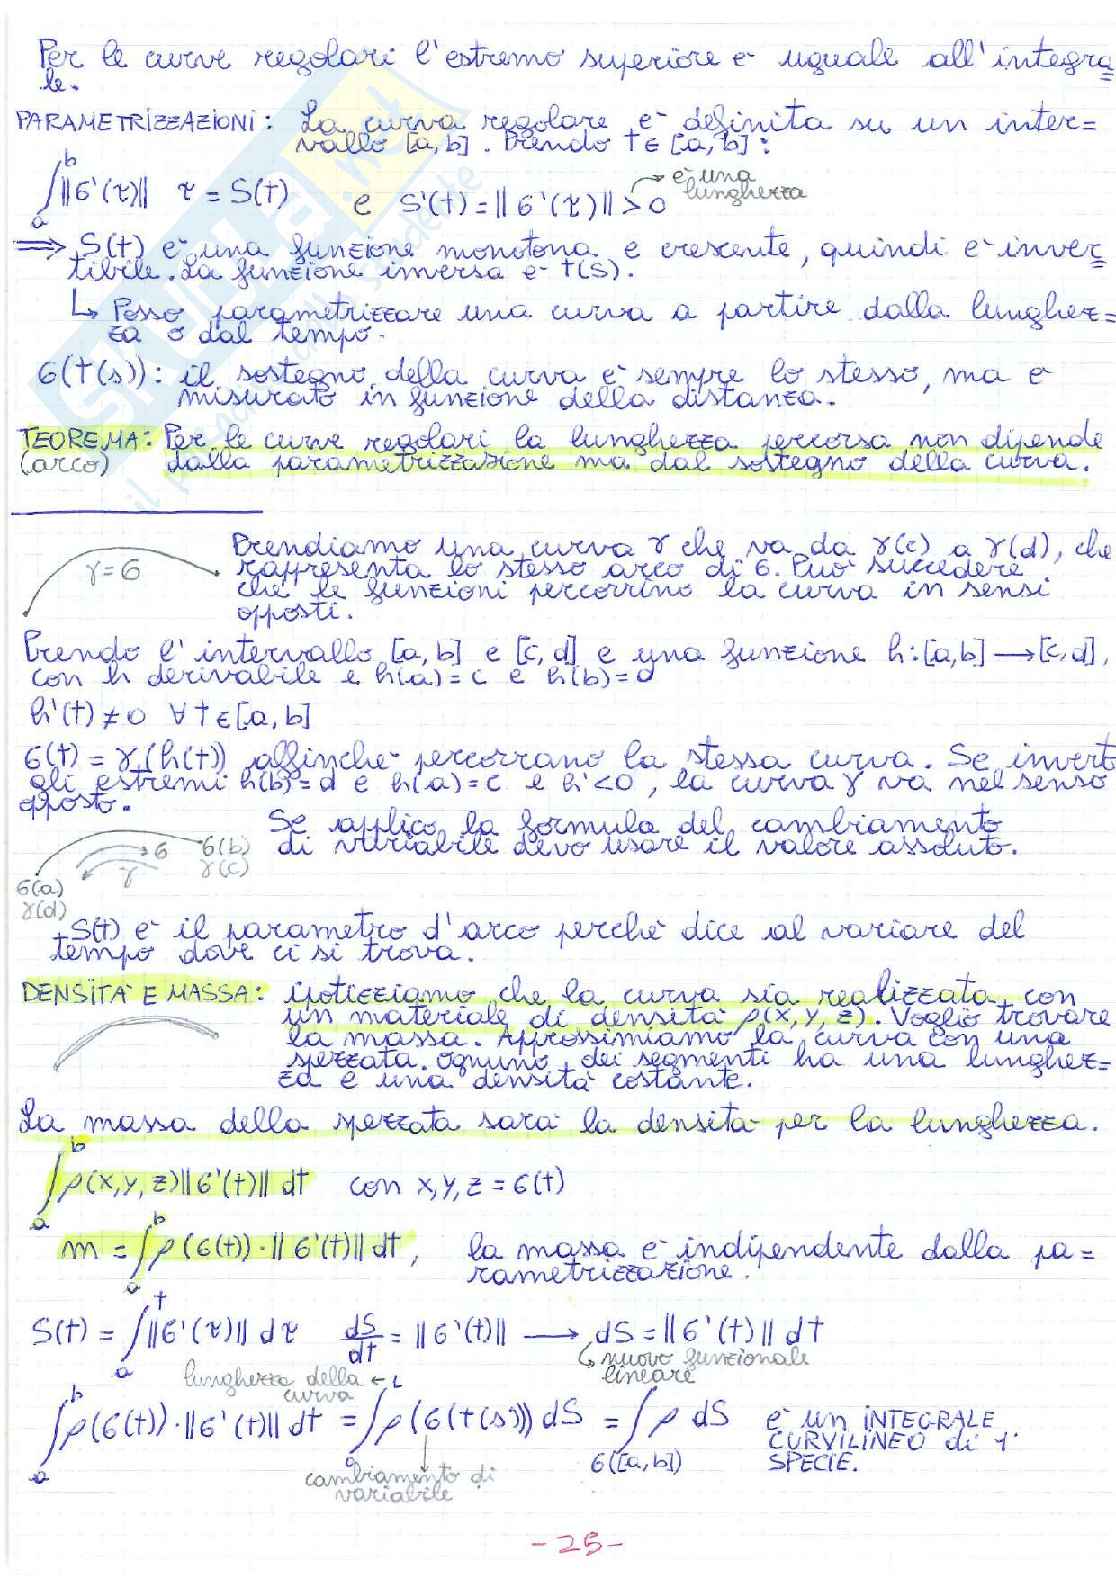 Per le curve regolari l'estremo superiore è uguale all'integra=
le.
PARAMETRIZZAZIONI: La curva regolare è definita su un inter=
vallo [a,b]. Prendo t ∈ [a,b]:
∫_a^b ||σ'(τ)|| τ = S(t) e S'(t) = ||σ'(τ)|| > 0 → è una
lunghezza
⟹ S(t) è una funzione monotona e crescente, quindi è inver=
tibile. La funzione inversa è t(s).
↳ Posso parametrizzare una curva a partire dalla lunghez=
za o dal tempo.
σ(t(s)): il sostegno della curva è sempre lo stesso, ma è
misurato in funzione della distanza.
TEOREMA: Per le curve regolari la lunghezza percorsa non dipende
(arco) dalla parametrizzazione ma dal sostegno della curva.
γ = σ
Prendiamo una curva γ che va da γ(c) a γ(d), che
rappresenta lo stesso arco di σ. Può succedere
che le funzioni percorrino la curva in sensi
opposti.
Prendo l'intervallo [a,b] e [c,d] e una funzione h: [a,b] → [c,d],
con h derivabile e h(a) = c e h(b) = d
h'(t) ≠ 0 ∀ t ∈ [a,b]
σ(t) = γ(h(t)) affinchè percorrano la stessa curva. Se inverto
gli estremi h(b) = d e h(a) = c e h' < 0, la curva γ va nel senso
opposto.
Se applico la formula del cambiamento
di variabile devo usare il valore assoluto.
σ σ(b)
γ γ(c)
σ(a)
γ(d)
S(t) è il parametro d'arco perchè dice al variare del
tempo dove ci si trova.
DENSITÀ E MASSA: ipotizziamo che la curva sia realizzata con
un materiale di densità ρ(x,y,z). Voglio trovare
la massa. Approssimiamo la curva con una
spezzata. Ognuno dei segmenti ha una lunghez=
za e una densità costante.
La massa della spezzata sarà la densità per la lunghezza.
∫_a^b ρ(x,y,z) ||σ'(t)|| dt con x,y,z = σ(t)
m = ∫_a^b ρ(σ(t)) · ||σ'(t)|| dt, la massa è indipendente dalla pa=
rametrizzazione.
S(t) = ∫_a^t ||σ'(τ)|| dτ dS/dt = ||σ'(t)|| → dS = ||σ'(t)|| dt
↳ nuovo funzionale
lineare
lunghezza della ← L
curva
∫_a^b ρ(σ(t)) · ||σ'(t)|| dt = ∫_0^L ρ(σ(t(s))) dS = ∫_σ([a,b]) ρ dS è un INTEGRALE
CURVILINEO di 1°
SPECIE.
cambiamento di
variabile
-25-
SKUOLA.net